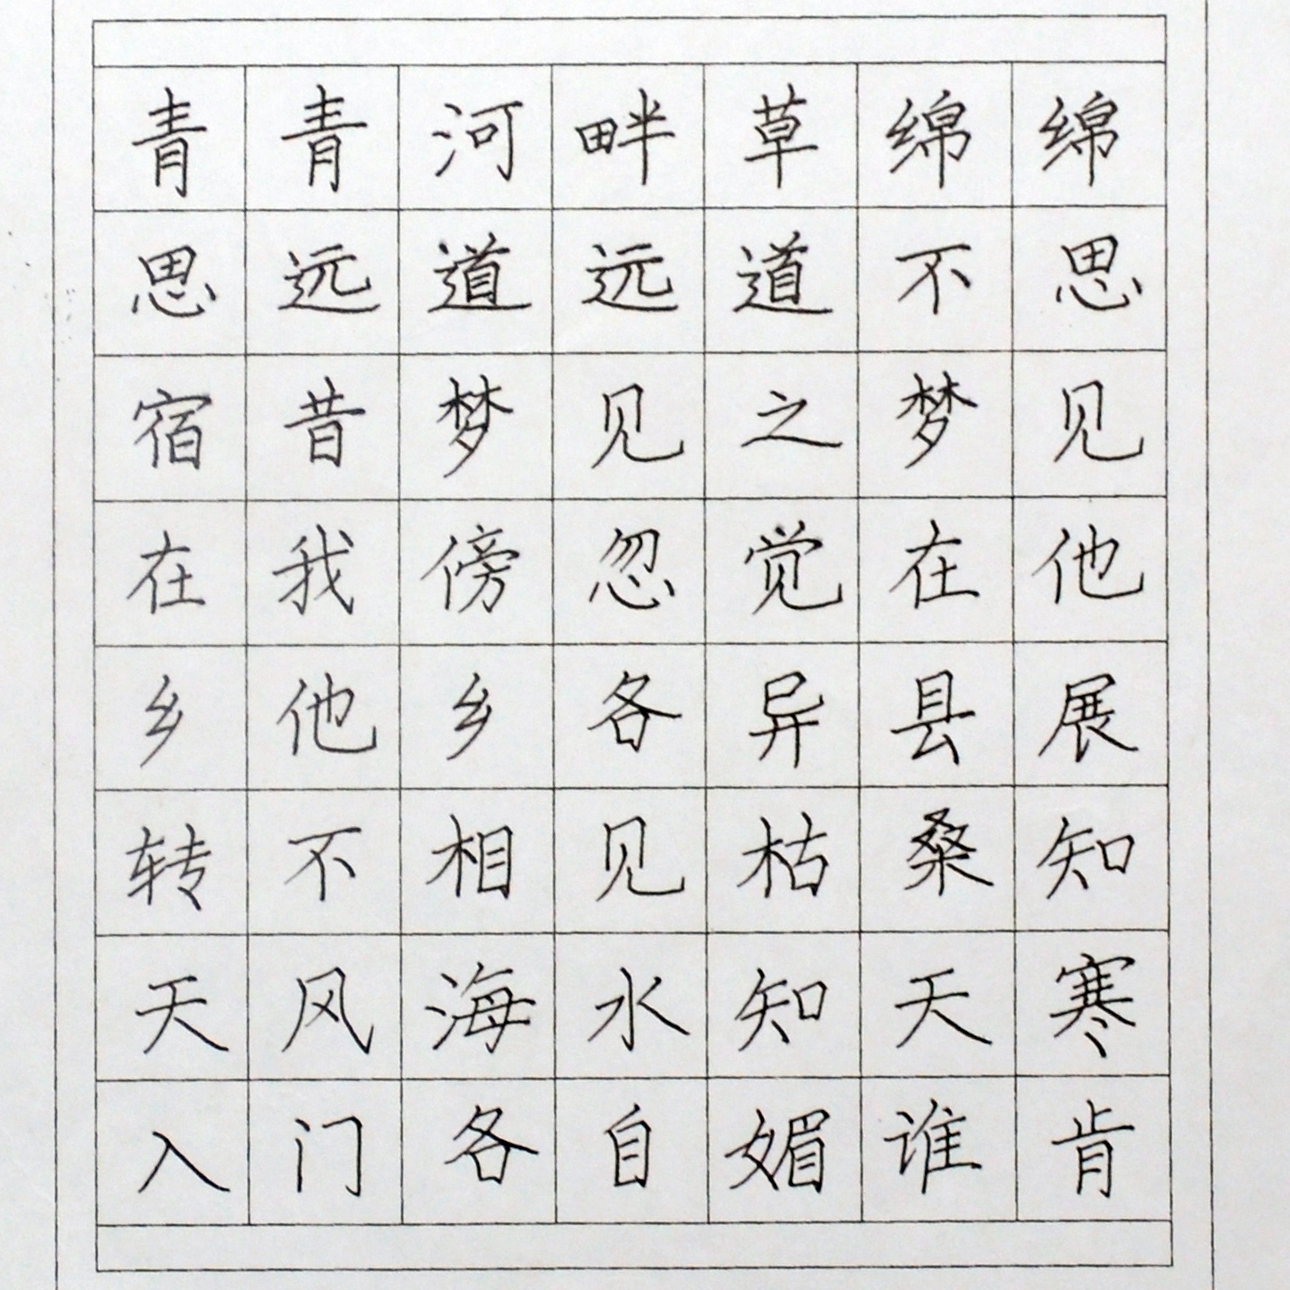 青青河畔草绵绵
思远道远道不思
宿昔梦见之梦见
在我傍忽觉在他
乡他乡各异县展
转不相见枯桑知
天风海水知天寒
入门各自媚谁肯